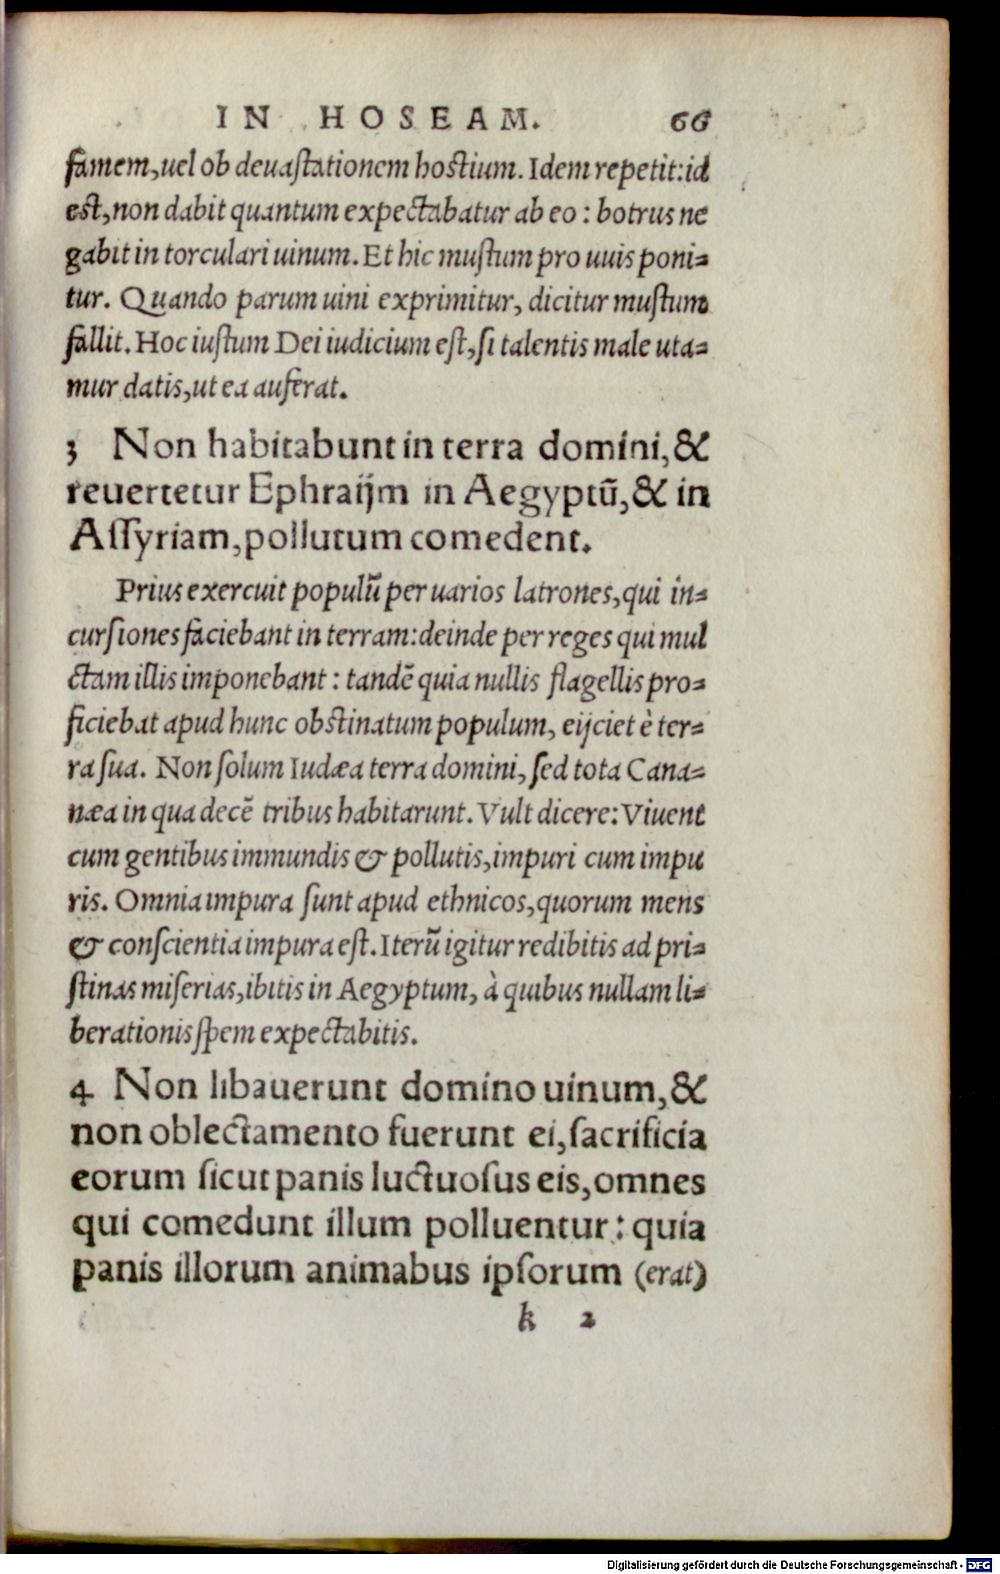 IN HOSEAM. 66
famem, uel ob deuaſtationem hoſtium. Idem repetit: id
eſt, non dabit quantum expectabatur ab eo: botrus ne
gabit in torculari uinum. Et hic muſtum pro uuis poni-
tur. Quando parum uini exprimitur, dicitur muſtum
fallit. Hoc iuſtum Dei iudicium eſt, ſi talentis male uta-
mur datis, ut ea auferat.
3 Non habitabunt in terra domini, &
reuertetur Ephraijm in Aegyptũ, & in
Aſſyriam, pollutum comedent.
Prius exercuit populũ per uarios latrones, qui in-
curſiones faciebant in terram: deinde per reges qui mul
ctam illis imponebant: tandẽ quia nullis flagellis pro-
ficiebat apud hunc obſtinatum populum, eijciet è ter-
ra ſua. Non ſolum Iudæa terra domini, ſed tota Cana-
næa in qua decẽ tribus habitarunt. Vult dicere: Viuent
cum gentibus immundis & pollutis, impuri cum impu
ris. Omnia impura ſunt apud ethnicos, quorum mens
& conſcientia impura eſt. Iterũ igitur redibitis ad pri-
ſtinas miſerias, ibitis in Aegyptum, à quibus nullam li-
berationis ſpem expectabitis.
4 Non libauerunt domino uinum, &
non oblectamento fuerunt ei, ſacrificia
eorum ſicut panis luctuoſus eis, omnes
qui comedunt illum polluentur: quia
panis illorum animabus ipſorum (erat)
k 2
Digitalisierung gefördert durch die Deutsche Forschungsgemeinschaft - DFG